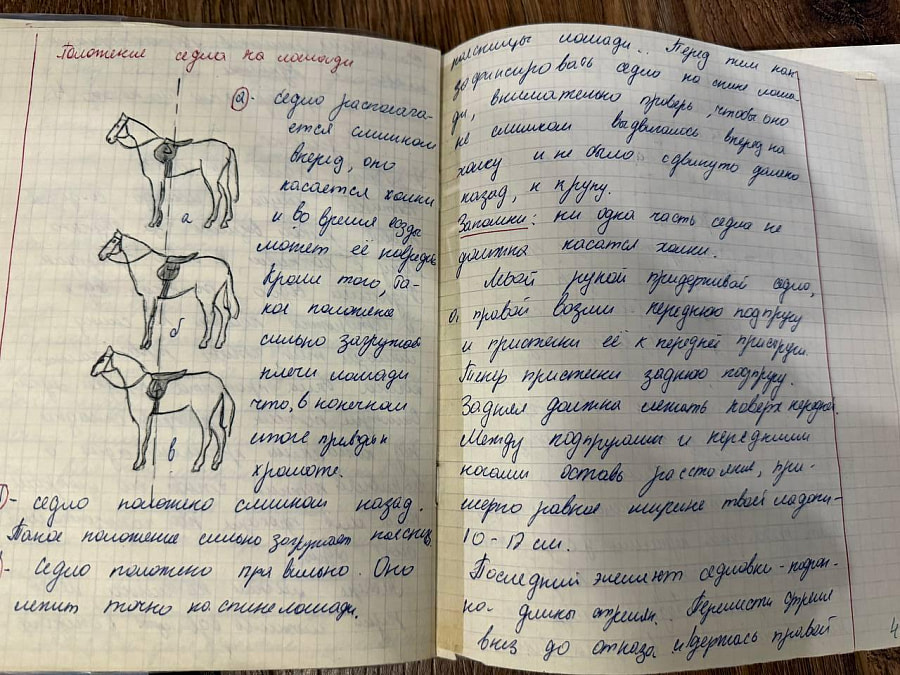 Положение седла на лошади
а - седло располага-
ется слишком
вперед, оно
касается холки
и во время езды
может её повредить
Кроме того, та-
кое положение
сильно загружает
плечи лошади
что, в конечном
итоге приводи к
хромоте.
а
б
в
- седло положено слишком назад.
Такое положение сильно загружает поясниц
- Седло положено правильно. Оно
лежит точно на спине лошади.
поясницы лошади.. Перед тем как
зафиксировать седло на спине лоша-
ди, внимательно проверь, чтобы оно
не слишком выдвигалось вперед на
холку и не было сдвинуто далеко
назад, к крупу.
Запомни: ни одна часть седла не
должна касатся холки.
Левой рукой придерживай седло,
правой возьми переднюю подпругу
и пристегни её к передней приструги.
Теперь пристегни заднюю подпругу.
Задняя должна лежать поверх передней.
Между подпругами и передними
ногами оставь расстояние, при-
мерно равное ширине твоей ладони-
10-12 см.
Последний элемент седловки - подгон-
ка длины стремян. Перемести стремя
вниз до отказа и держась правой
4